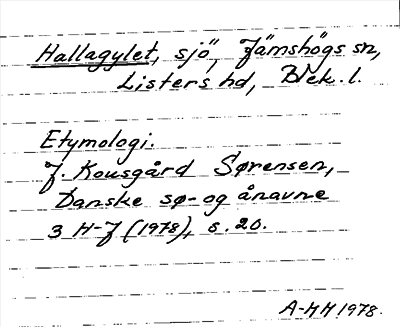 Hallagylet, sjö, Jämshögs sn,
Listers hd, Blek. l.
Etymologi.
J. Kousgård Sørensen,
Danske sø- og ånavne
3 H-J (1978), s. 20.
A-HH 1978.